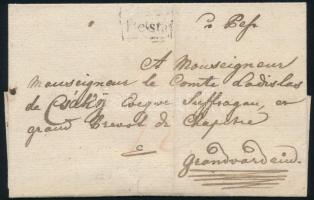 Pest
A Monseigneur
Monseigneur le Comte Ladislas
de Csáky Eveque Suffragan, et
grand Prevot de Chapitre
Grandvardein.